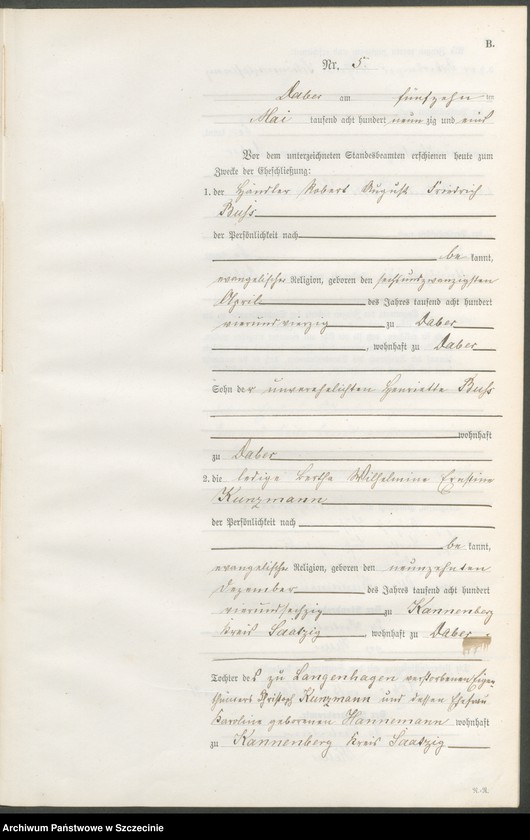 B.
Nr. 5.
Daber am fünfzehn ten
Mai tausend acht hundert neunzig und eins
Vor dem unterzeichneten Standesbeamten erschienen heute zum
Zwecke der Eheschließung:
1. der Händler Robert August Friedrich
Buss
der Persönlichkeit nach
be kannt,
evangelischer Religion, geboren den sechsundzwanzigsten
April des Jahres tausend acht hundert
vierundvierzig zu Daber
, wohnhaft zu Daber
Sohn der unverehelichten Henriette Buss
wohnhaft
zu Daber
2. die ledige Bertha Wilhelmine Ernstine
Kunzmann
der Persönlichkeit nach
be kannt,
evangelischer Religion, geboren den neunzehnten
Dezember des Jahres tausend acht hundert
vierundsechzig zu Kannenberg
Kreis Saatzig, wohnhaft zu Daber
Tochter des zu Langenhagen verstorbenen Eigen-
thümers Christoph Kunzmann und dessen Ehefrau
Karoline geborenen Hannemann wohnhaft
zu Kannenberg Kreis Saatzig
Archiwum Państwowe w Szczecinie